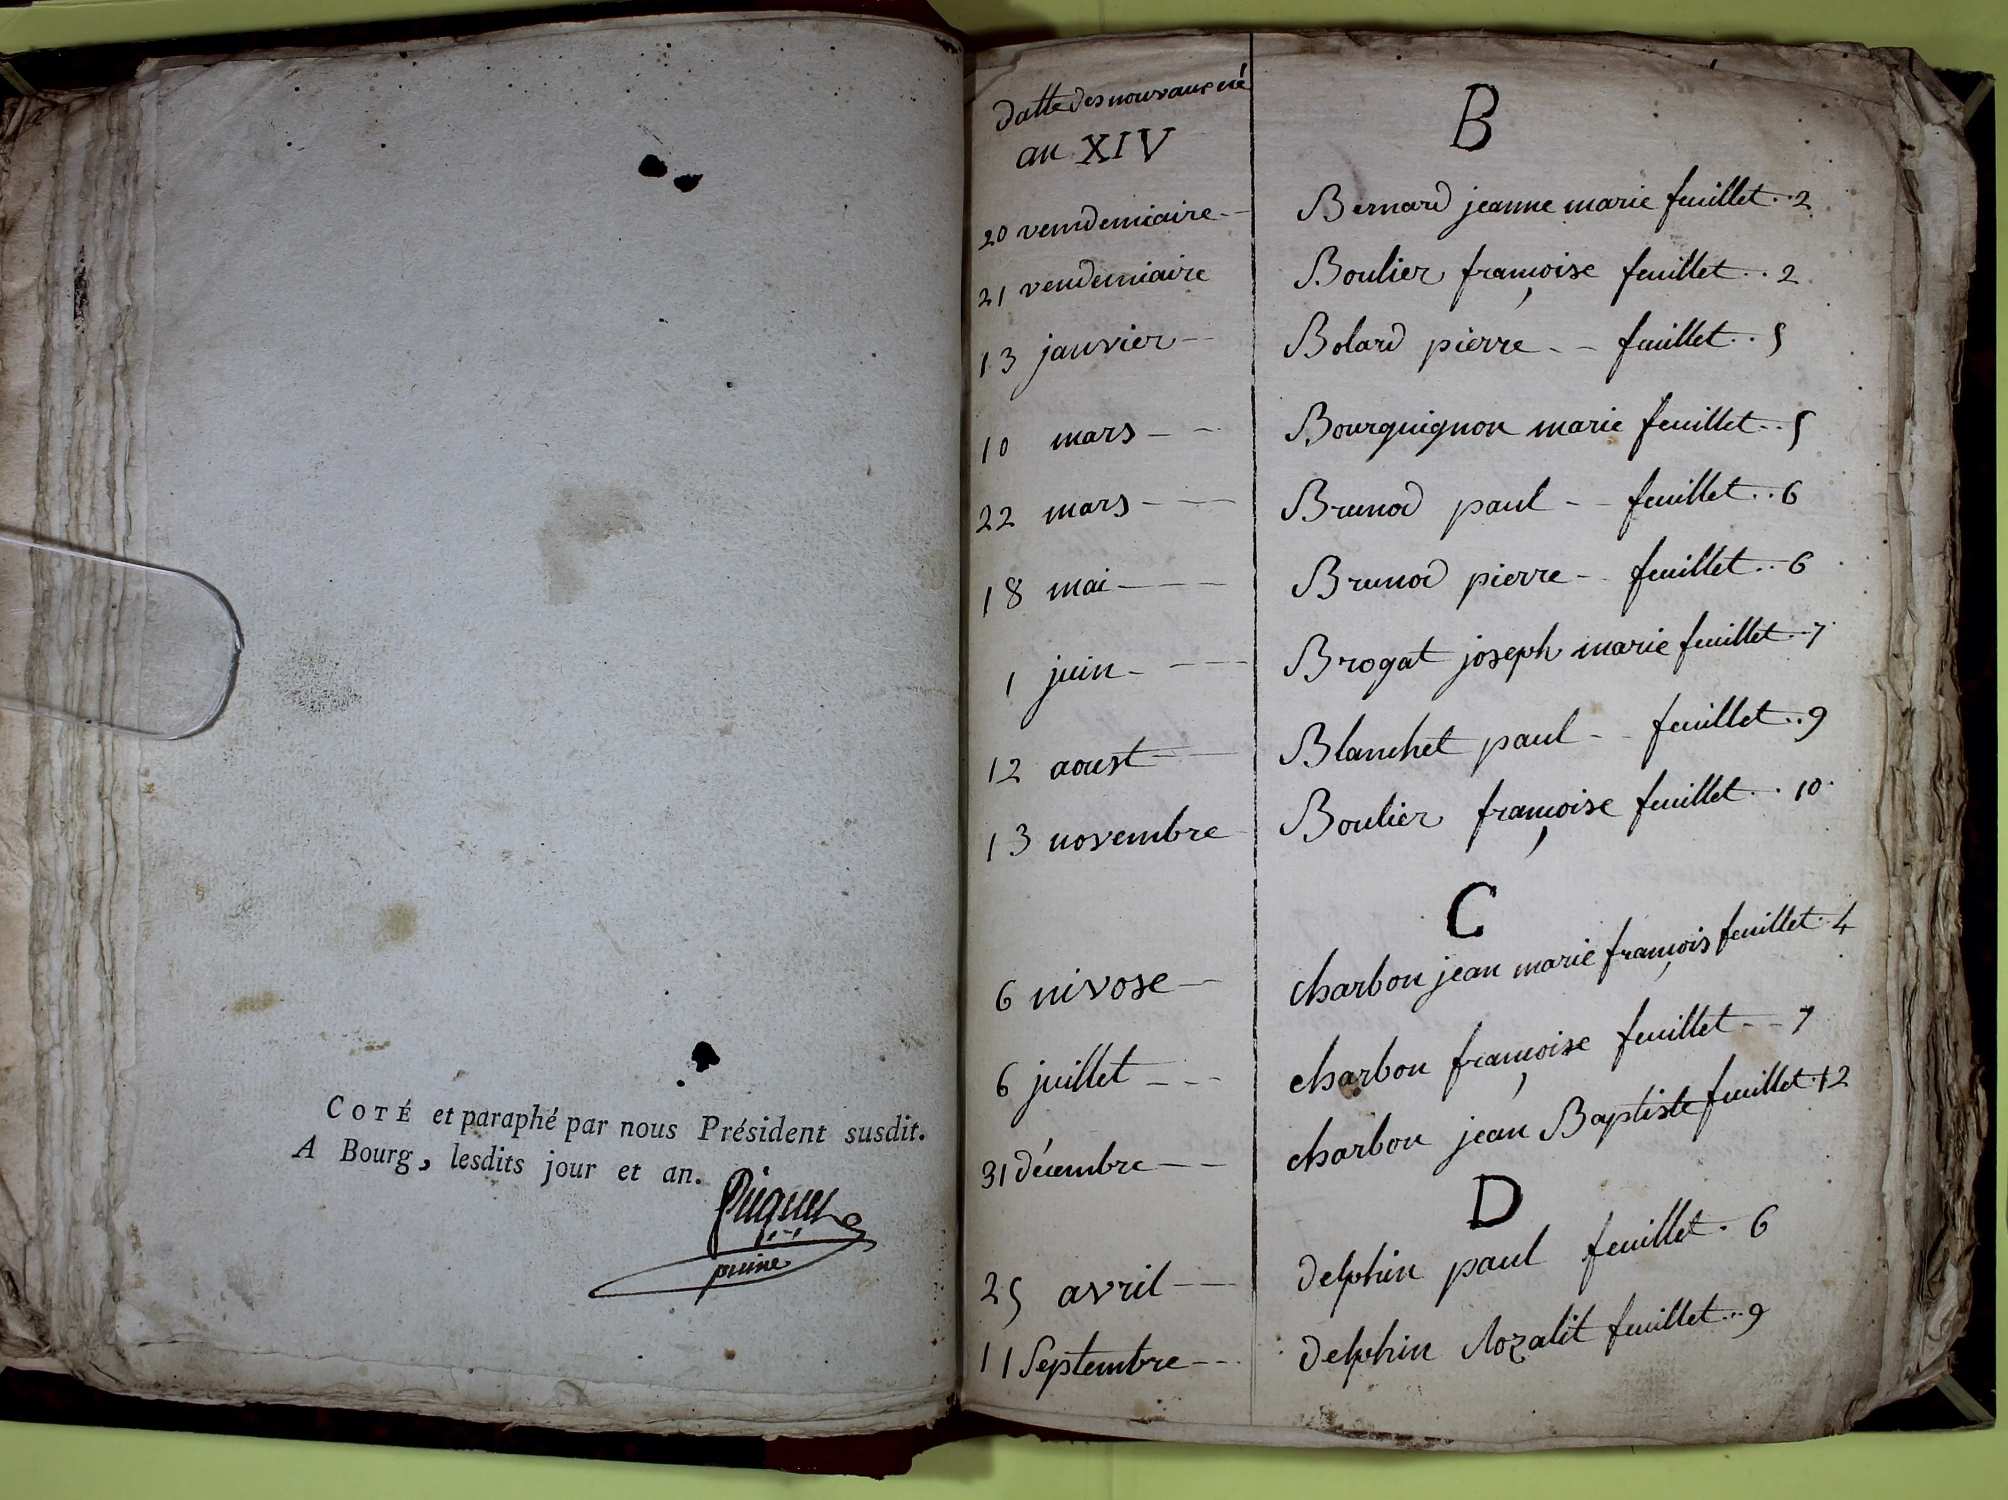 COTÉ et paraphé par nous Président susdit.
A Bourg, lesdits jour et an.
puiné
datte des nouvaux né
an XIV
B
20 vendemiaire -- Bernard jeanne marie feuillet .. 2
21 vendemiaire Boulier françoise feuillet .. 2
13 janvier -- Bolard pierre -- feuillet .. 5
10 mars -- Bourguignon marie feuillet .. 5
22 mars --- Brunod paul -- feuillet .. 6
18 mai --- Brunod pierre -- feuillet .. 6
1 juin ---- Brogat joseph marie feuillet .. 7
12 aoust -- Blanchet paul -- feuillet .. 9
13 novembre Boulier françoise feuillet .. 10
C
6 nivose -- charbon jean marie françois feuillet .. 4
6 juillet --- charbon françoise feuillet -- 7
31 décembre -- charbon jean Baptiste feuillet . 12
D
25 avril -- delphin paul feuillet . 6
11 Septembre -- delphin Rozalit feuillet .. 9